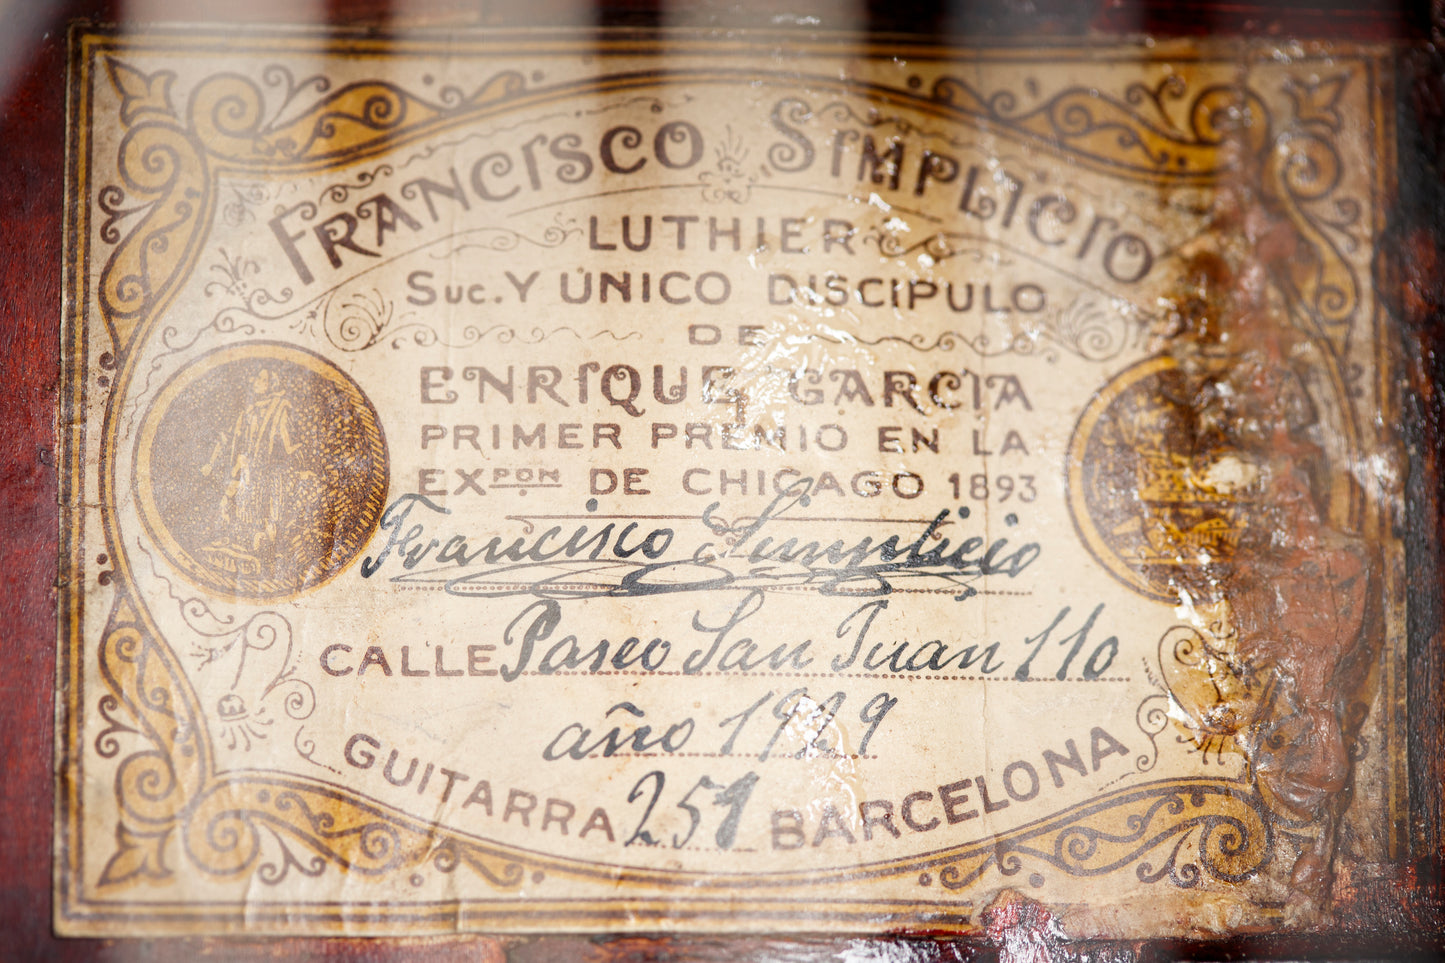 FRANCISCO SIMPLICIO
LUTHIER
SUC. Y ÚNICO DISCIPULO
DE
ENRIQUE GARCIA
PRIMER PREMIO EN LA
EXPON DE CHICAGO 1893
Francisco Simplicio
CALLE Paseo San Juan 110
año 1929
GUITARRA 259 BARCELONA